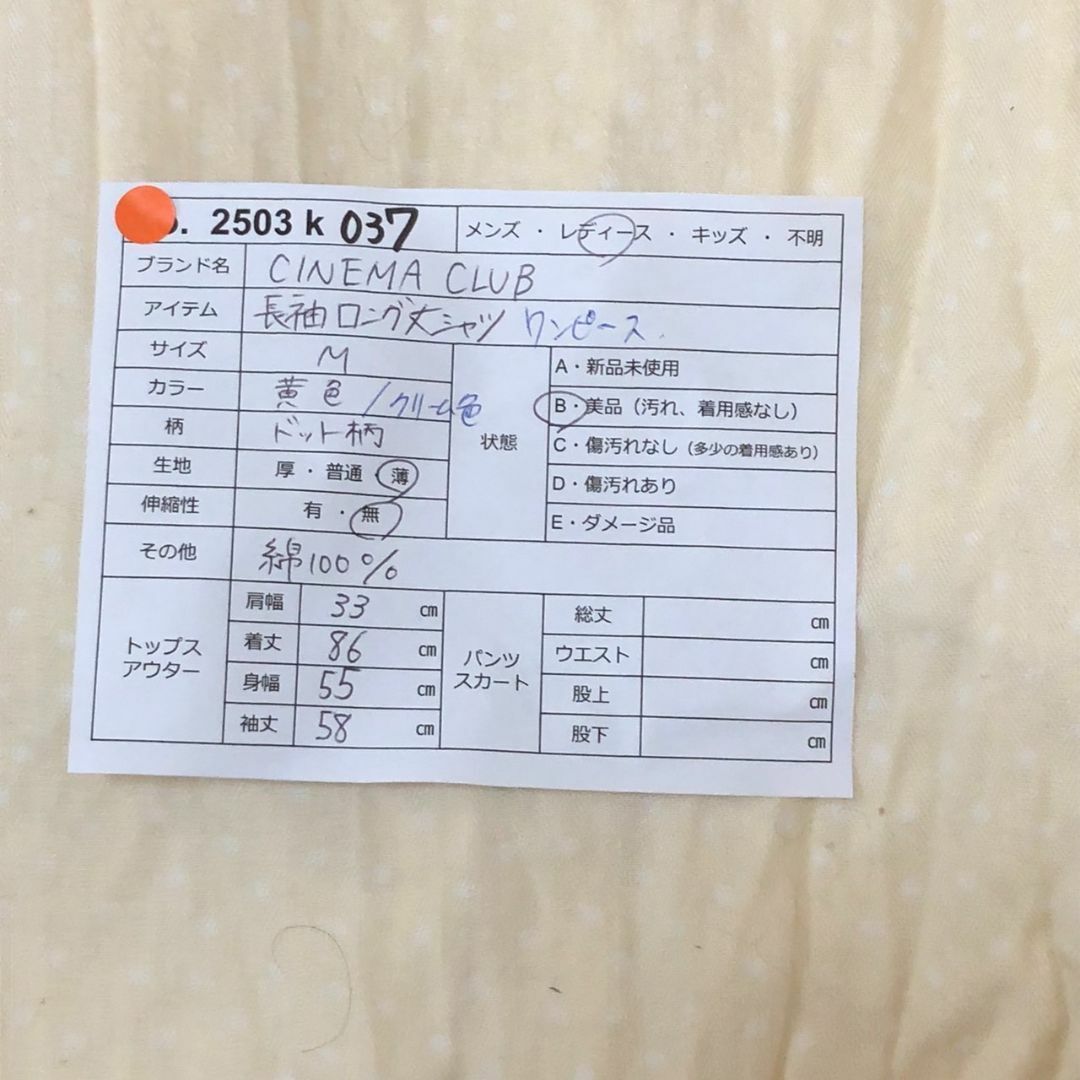 . 2503 k 037 メンズ ・ レディース ・ キッズ ・ 不明
ブランド名 CINEMA CLUB
アイテム 長袖ロング丈シャツ ワンピース.
サイズ M
カラー 黄色 /クリーム色
柄 ドット柄
生地 厚・普通・薄
伸縮性 有・無
状態
A・新品未使用
B・美品（汚れ、着用感なし）
C・傷汚れなし（多少の着用感あり）
D・傷汚れあり
E・ダメージ品
その他 綿100%
トップス
アウター
肩幅 33 ㎝
着丈 86 ㎝
身幅 55 ㎝
袖丈 58 ㎝
パンツ
スカート
総丈 ㎝
ウエスト ㎝
股上 ㎝
股下 ㎝